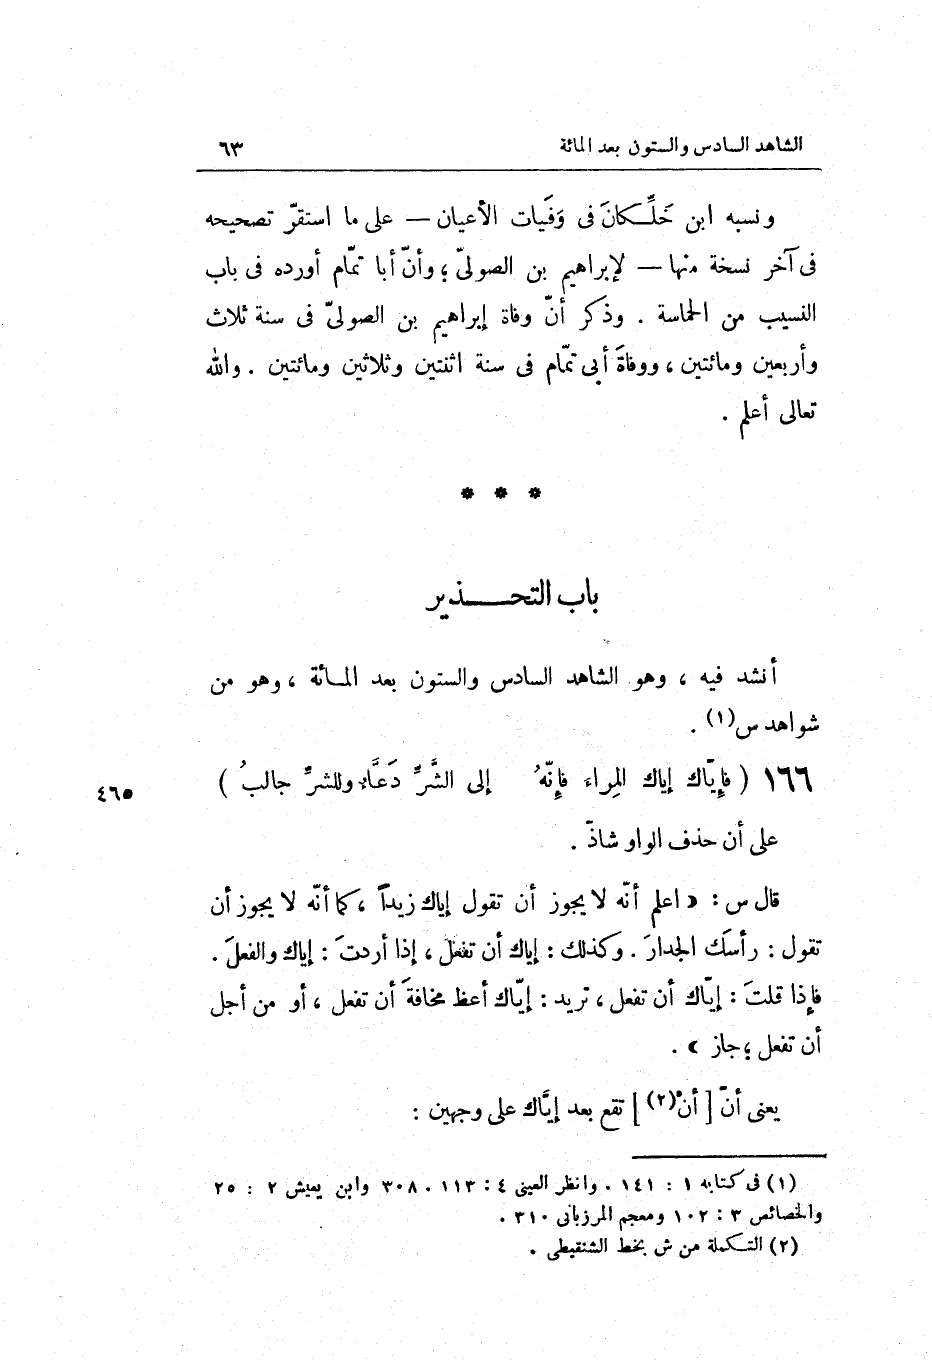 الشاهد السادس والستون بعد المائة ٦٣
ونسبه ابن خَلِّكانَ فى وَفَيات الأعيان — على ما استقرّ تصحيحه
فى آخر نسخة منها — لإبراهيم بن الصولىّ ؛ وأنّ أبا تمّام أورده فى باب
النسيب من الحماسة . وذكر أنّ وفاة إبراهيم بن الصولىّ فى سنة ثلاث
وأربعين ومائتين ، ووفاةَ أبى تمّام فى سنة اثنتين وثلاثين ومائتين . والله
تعالى أعلم .
* * *
باب التحـــذير
أنشد فيه ، وهو الشاهد السادس والستون بعد المــائة ، وهو من
شواهد س(١) .
١٦٦ ( فإِيّاك إياك المِراء فإِنّهُ إلى الشَّرِّ دَعَّاء وللشرِّ جالبُ )
٤٦٥
على أن حذف الواو شاذّ .
قال س : « اعلم أنّه لا يجوز أن تقول إياك زيداً ، كما أنّه لا يجوز أن
تقول : رأسَك الجدارَ . وكذلك : إياك أن تفعلَ ، إذا أردتَ : إياك والفعلَ .
فإذا قلتَ : إيّاك أن تفعل ، تريد : إيّاك أعظ مخافةَ أن تفعل ، أو من أجل
أن تفعل ؛ جاز » .
يعنى أنّ [ أنْ(٢) ] تقع بعد إيَّاك على وجهين :
(١) فى كتابه ١ : ١٤١ . وانظر العينى ٤ : ١١٣ . ٣٠٨ وابن يعيش ٢ : ٢٥
والخصائص ٣ : ١٠٢ ومعجم المرزبانى ٣١٠ .
(٢) التـكملة من ش بخط الشنقيطى .